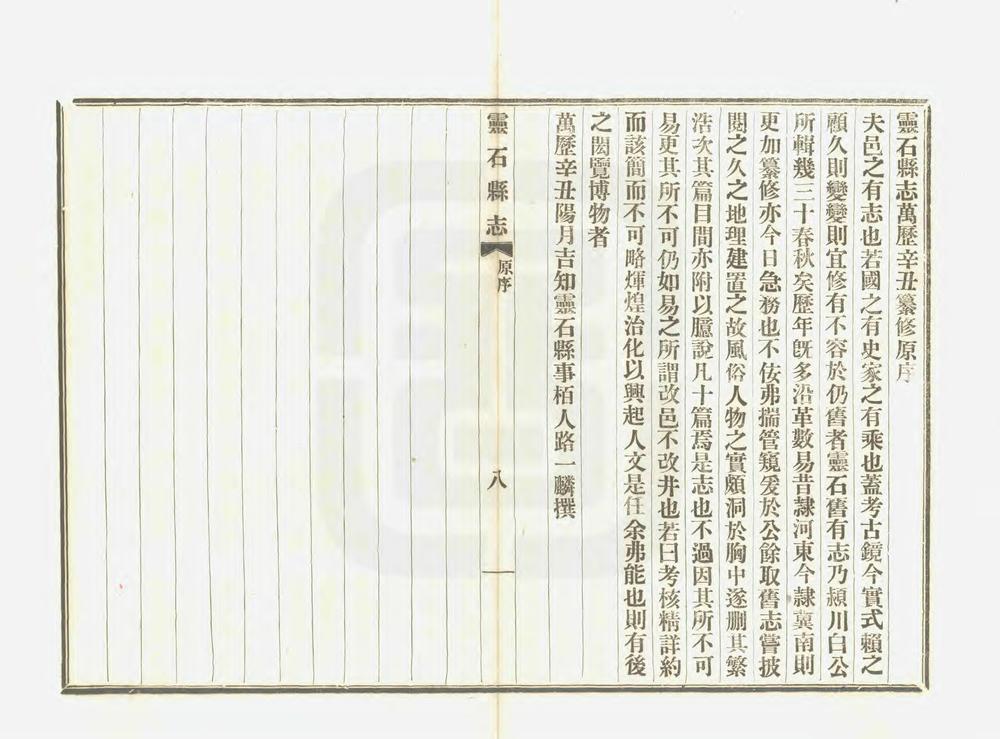 靈石縣志萬歷辛丑纂修原序
夫邑之有志也若國之有史家之有乘也蓋考古鏡今實式賴之
顧久則變變則宜修有不容於仍舊者靈石舊有志乃潁川白公
所輯幾三十春秋矣歷年旣多沿革數易昔隷河東今隷冀南則
更加纂修亦今日急務也不佞弗揣管窺爰於公餘取舊志嘗披
閱之久之地理建置之故風俗人物之實頗洞於胸中遂刪其繁
浩次其篇目間亦附以臆說凡十篇焉是志也不過因其所不可
易更其所不可仍如易之所謂改邑不改井也若曰考核精詳約
而該簡而不可略煇煌治化以興起人文是任余弗能也則有後
之閎覽博物者
萬歷辛丑陽月吉知靈石縣事栢人路一麟撰
靈石縣志
原序
八